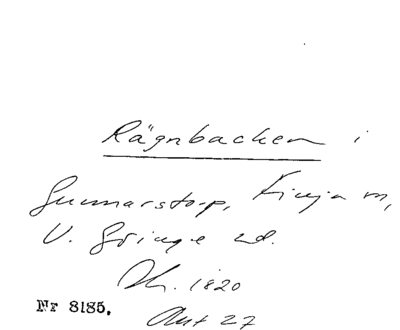 Rägnbacken i
Gunnarstorp, Finja sn,
V. Göinge hd.
Sk. 1820
Nr 8185. Aut 27